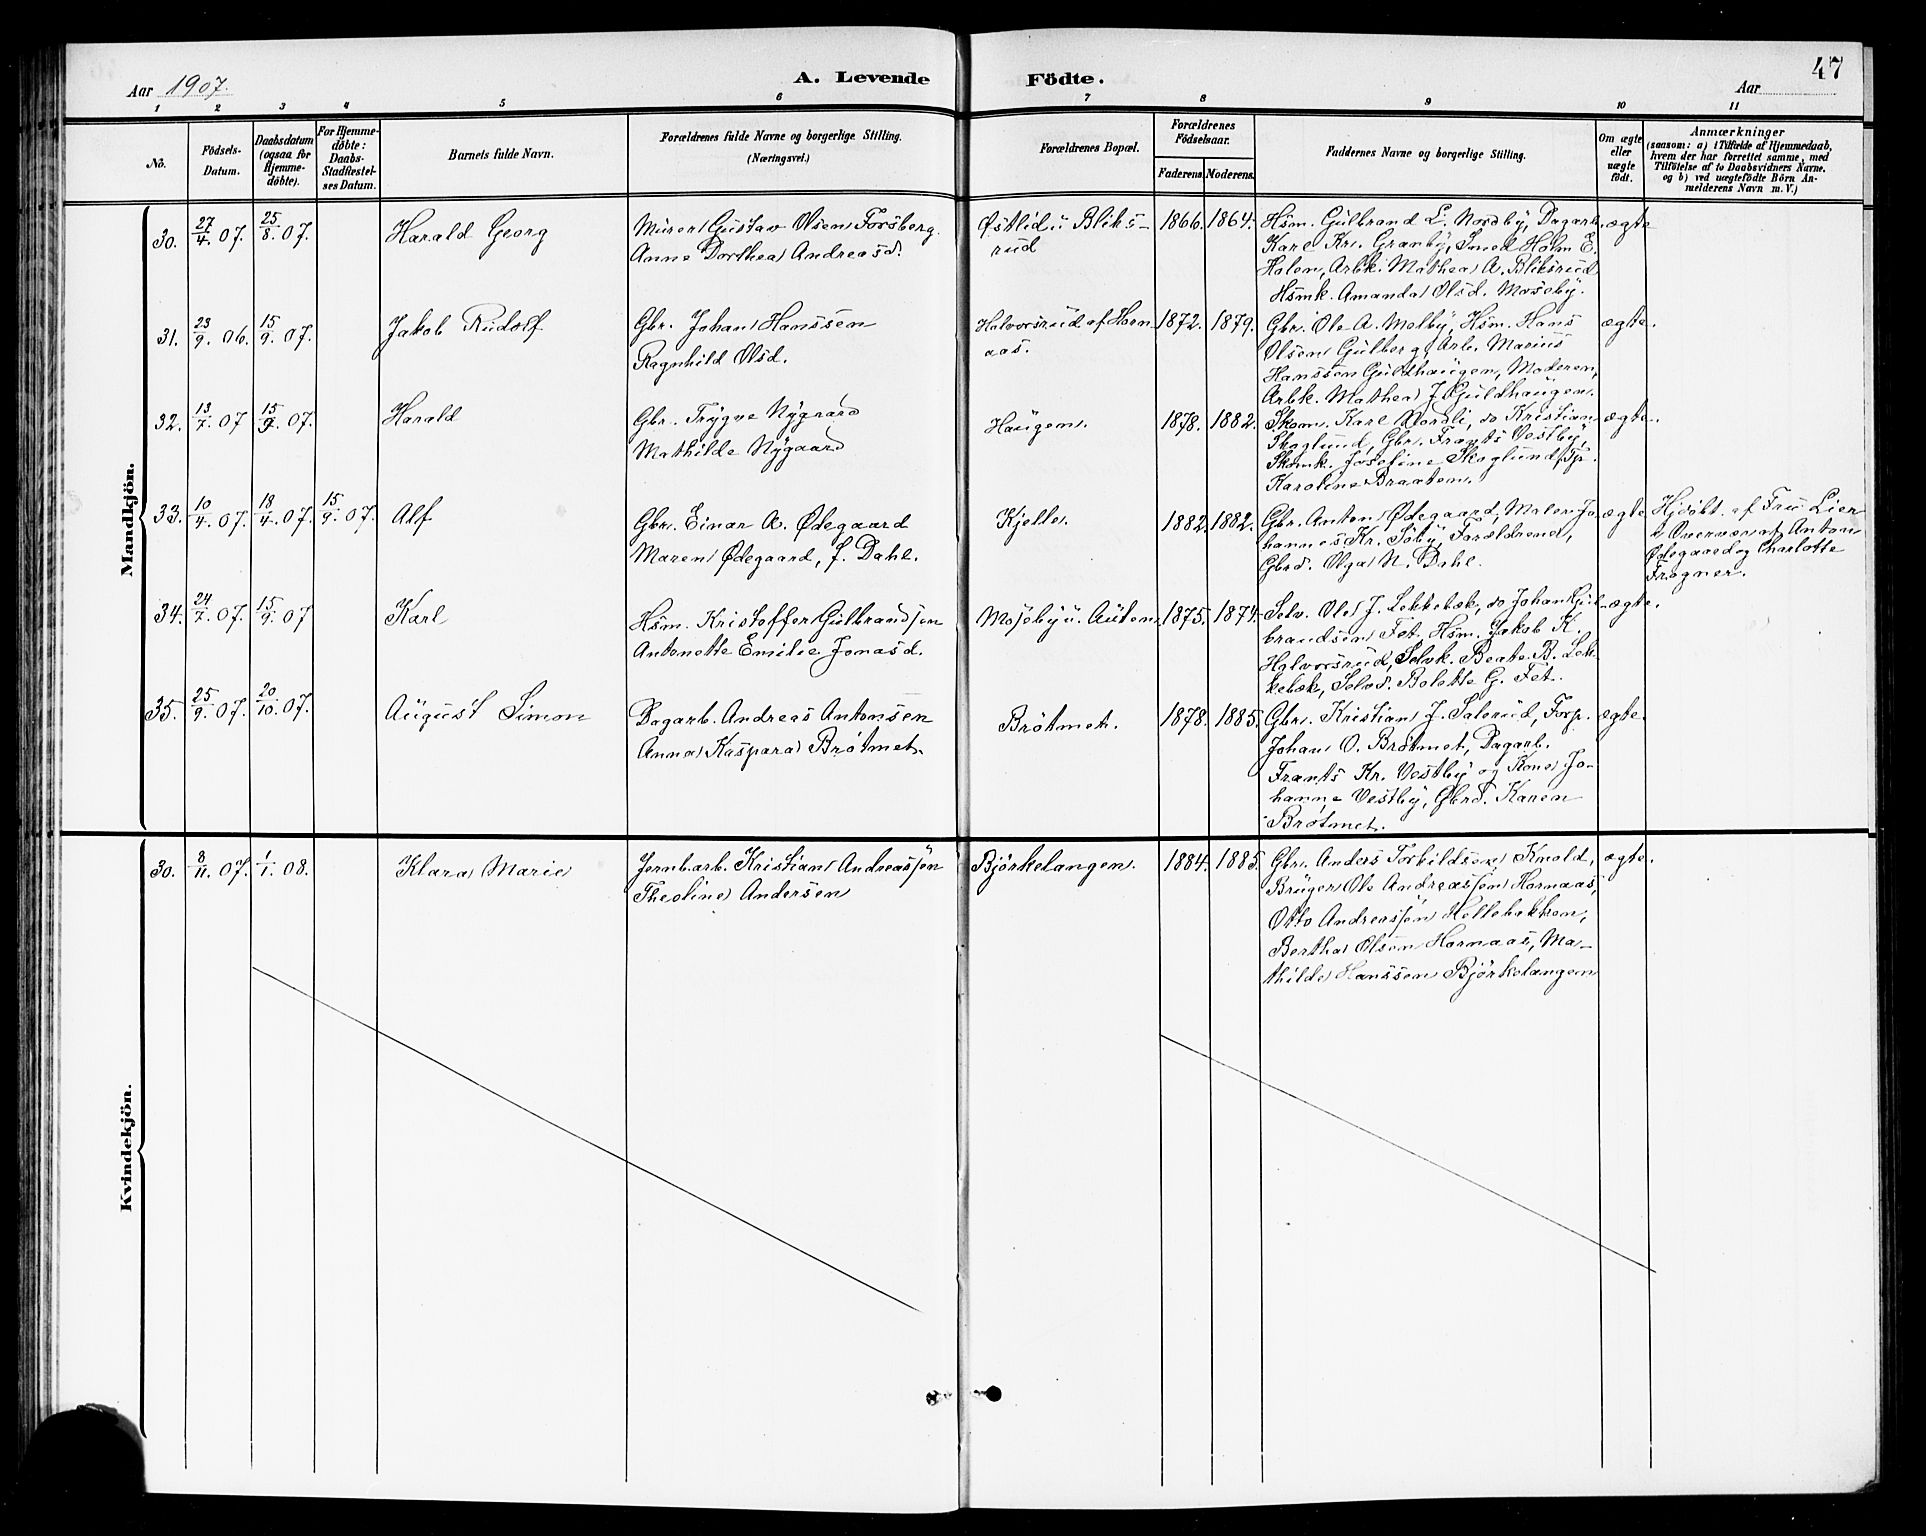 Aar 1907.
A. Levende
Födte.
Aar
47
1 2 3 4 5 6 7 8 9 10 11
No.
Födsels-
Datum.
Daabsdatum
(ogsaa for
Hjemme-
döbte).
For Hjemme-
döbte:
Daabs-
Stadfæstel-
ses Datum.
Barnets fulde Navn.
Forældrenes fulde Navne og borgerlige Stilling.
(Næringsvei.)
Forældrenes Bopæl.
Forældrenes
Födselsaar.
Faderens. Moderens.
Faddernes Navne og borgerlige Stilling.
Om ægte
eller
uægte
födt.
Anmærkninger
(saasom: a) i Tilfælde af Hjemmedaab,
hvem der har forrettet samme, med
Tilföielse af to Daabsvidners Navne.
og b) ved uægtefödte Börn An-
melderens Navn m. V.)
Mandkjön.
30. 27/4 07. 25/8 07. Harald Georg
Murer Gustav Olsen Forsberg
Anne Dorthea Andreasd.
Østlid u Bliks-
rud
1866. 1864.
Hsm. Gulbrand L. Nordby, Dagarb.
Karl Kr. Granby, Smed Holm E.
Holen, Arbk. Mathea A. Bliksrud
Hsmk. Amanda Olsd. Moseby.
ægte
31. 23/9 06. 15/9 07. Jakob Rudolf
Gbr. Johan Hanssen
Ragnhild Olsd.
Halvorsrud af Horn-
aas.
1872. 1879.
Gbr. Ole A. Melby, Hsm. Hans
Olsen Gulberg, Arb. Marius
Hanssen Guldhaugen, Moderen,
Arbk. Mathea J. Guldhaugen.
ægte.
32. 13/7 07 15/9 07. Harald
Gbr. Trygve Nygaard
Mathilde Nygaard
Haugen.
1878. 1882.
Skom. Karl Nordli, do Kristian
Skoglund, Gbr. Frants Vestby,
Skomk. Josefine Skoglund, Tjp.
Karoline Braaten.
ægte.
33. 10/4 07. 18/4 07. 15/9 07. Alf
Gbr. Einar A. Ødegaard
Maren Ødegaard, f. Dahl.
Kjelle.
1882. 1882.
Gbr. Anton Ødegaard, Maler Jo-
hannes Kr. Søby, Forældrene,
Gbrd. Olga N. Dahl.
ægte
Hjdöbt af Fru Lier
i Overvær af Anton
Ødegaard og Charlotte
Frogner.
34. 24/7 07. 15/9 07 Karl
Hsm. Kristoffer Gulbrandsen
Antonette Emilie Jonasd.
Moseby u. Auten.
1875. 1874.
Selv. Ole J. Lekkebæk, do Johan Gul-
brandsen Fet, Hsm. Jakob K.
Halvorsrud, Selvk. Beate B. Lek-
kebæk, Selvd. Bolette G. Fet.
ægte.
35. 25/9 07. 20/10 07. August Simon
Dagarb. Andreas Antonsen
Anna Kaspara Brøtmet.
Brøtmet.
1878. 1885.
Gbr. Kristian J. Solerud, Forp.
Johan O. Brøtmet, Dagarb.
Frants Kr. Vestby og Kone Jo-
hanne Vestby, Gbrd. Karen
Brøtmet.
ægte.
Kvindekjön.
30. 8/11 07. 1/1 08. Klara Marie
Jernbarb. Kristian Andreassen
Theoline Andersen
Bjørkelangen.
1884. 1885.
Gbr. Anders Torkildsen Knold,
Bruger Ole Andreassen Hornaas,
Otto Andreassen Hellebekken,
Bertha Olsen Hornaas, Ma-
thilde Hanssen Bjørkelangen
ægte.